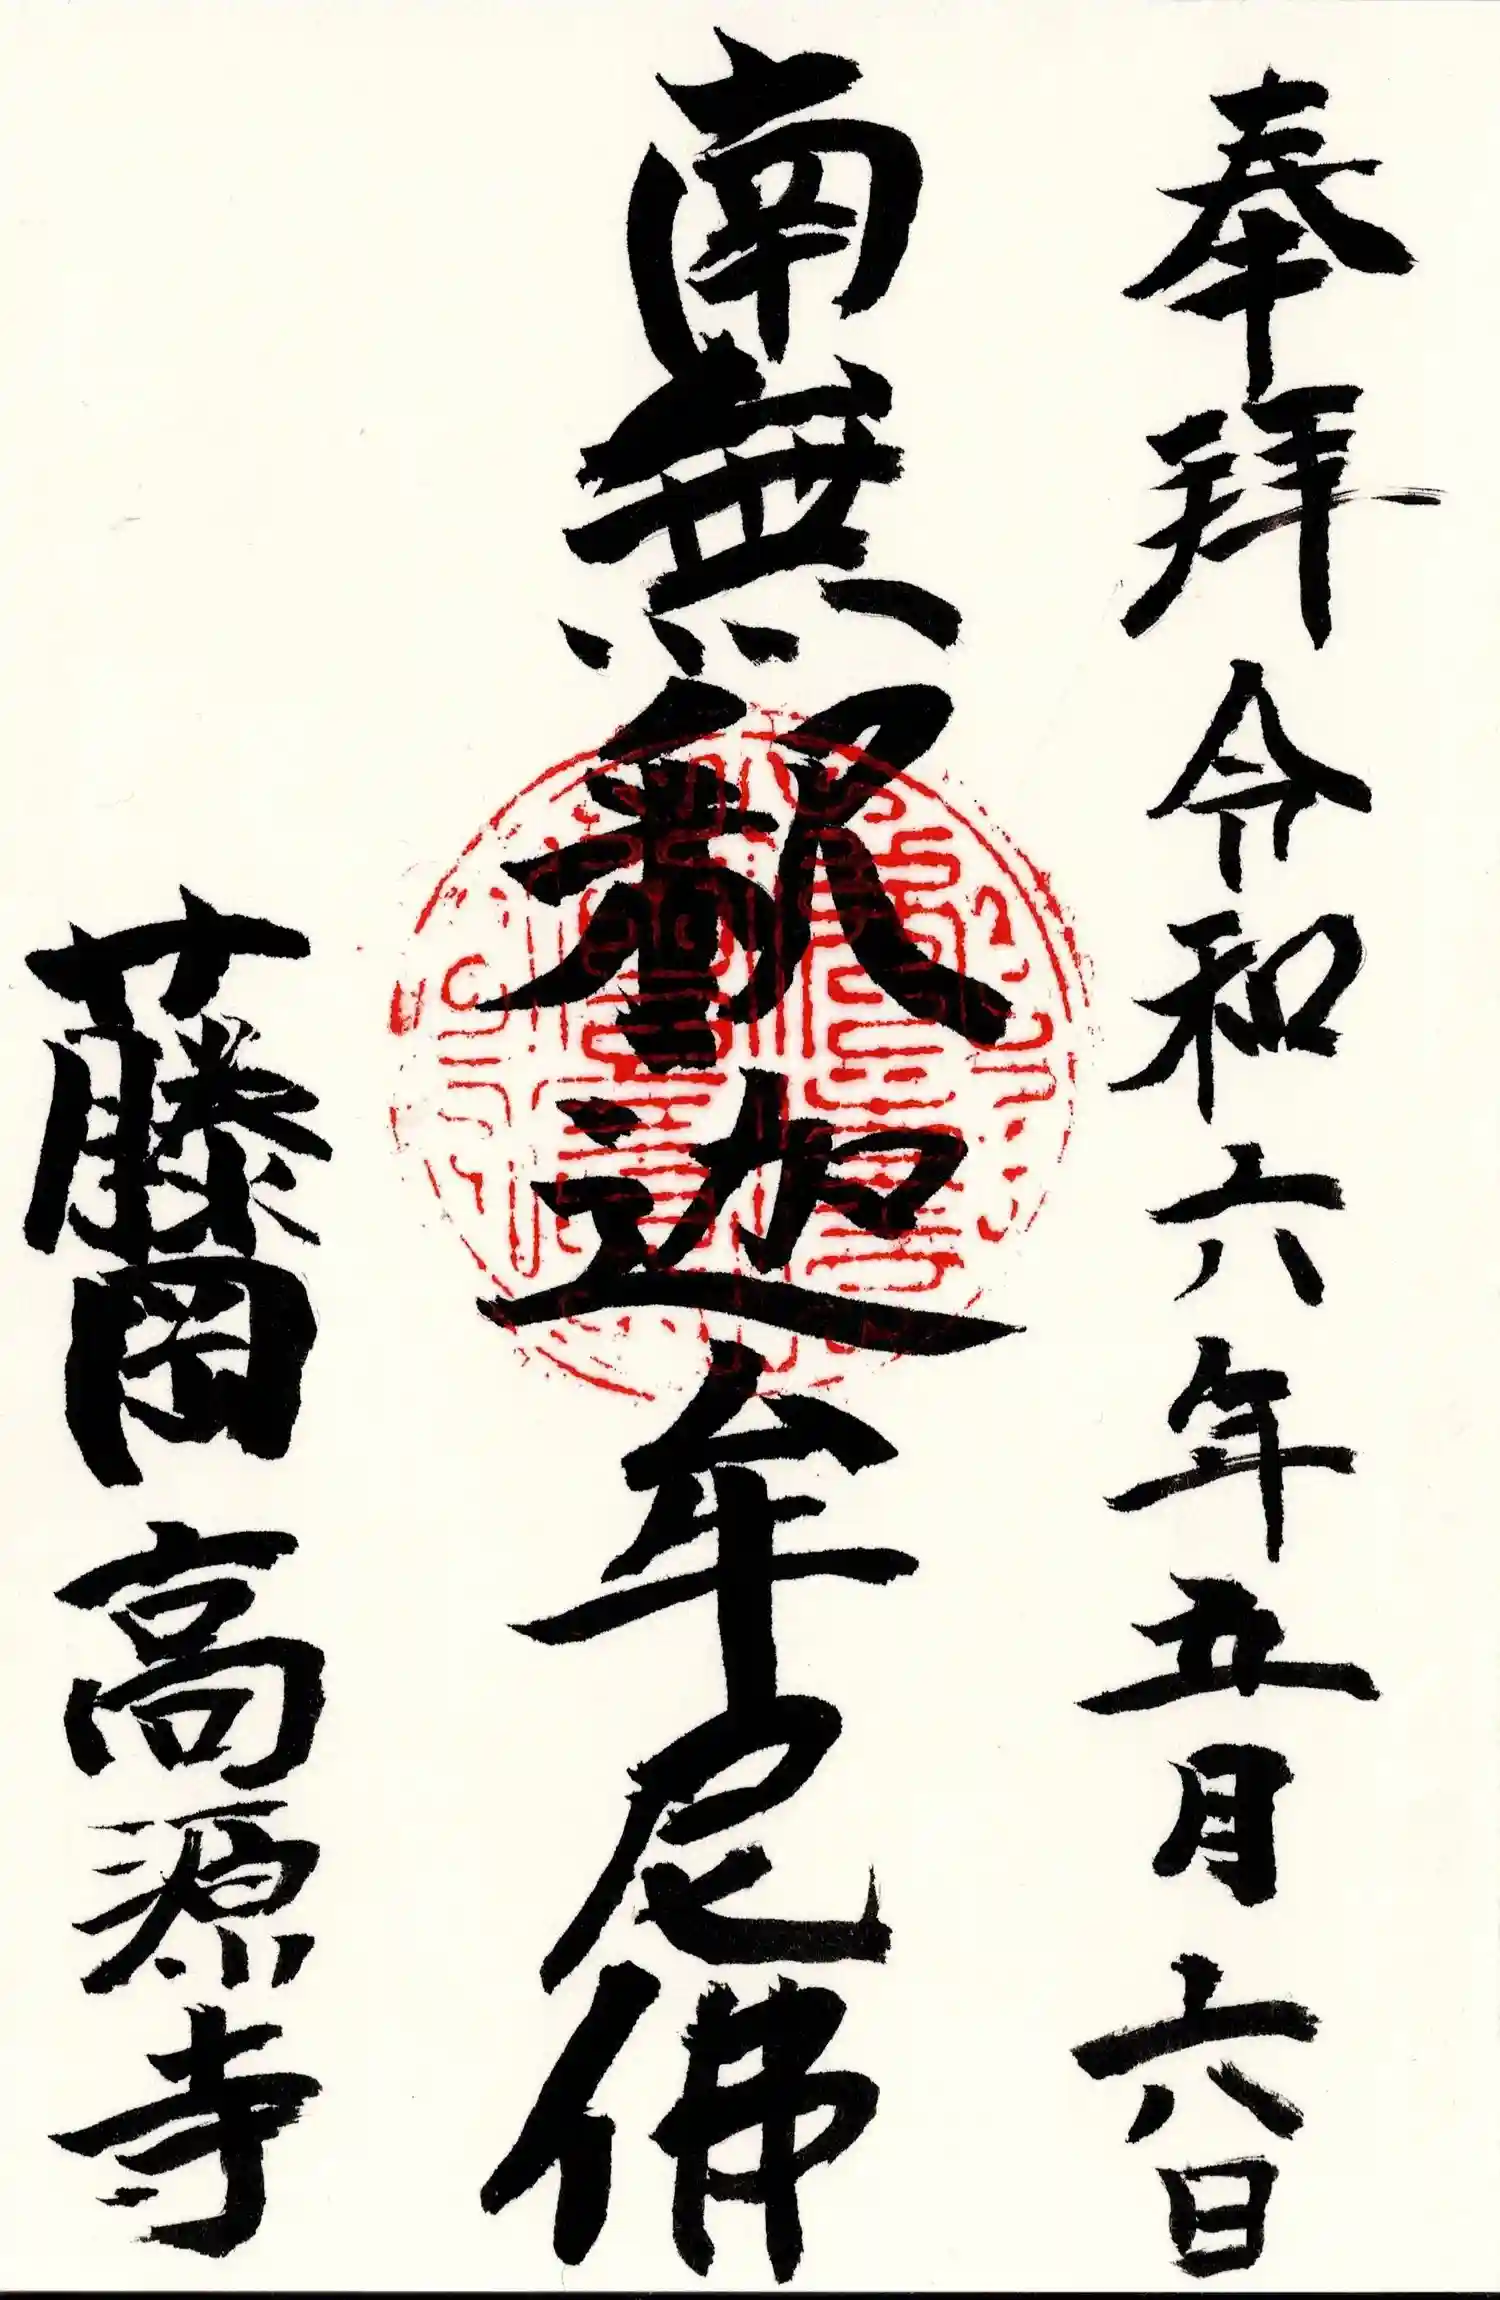 奉拜 令和六年五月六日
南無釈迦牟尼佛
藤岡 高源寺